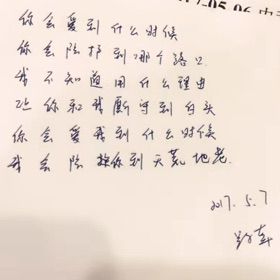 05-06
你会爱到什么时候
你会陪我到哪个路口
我不知道用什么理由
让你和我厮守到白头
你会爱我到什么时候
我会陪着你到天荒地老
2017.5.7